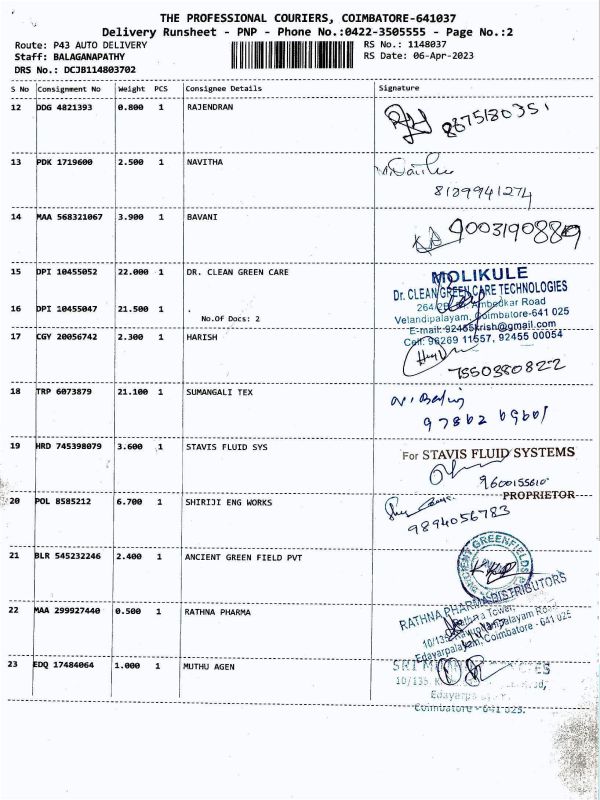 THE PROFESSIONAL COURIERS, COIMBATORE-641037
Delivery Runsheet - PNP - Phone No.:0422-3505555 - Page No.:2
Route: P43 AUTO DELIVERY
Staff: BALAGANAPATHY
DRS No.: DCJB114803702
RS No.: 1148037
RS Date: 06-Apr-2023
S No Consignment No Weight PCS Consignee Details Signature
12 DDG 4821393 0.800 1 RAJENDRAN
8675180351
13 PDK 1719600 2.500 1 NAVITHA
8129941274
14 MAA 568321067 3.900 1 BAVANI
9003190889
15 DPI 10455052 22.000 1 DR. CLEAN GREEN CARE
MOLIKULE
Dr. CLEAN GREEN CARE TECHNOLOGIES
Ambedkar Road
Velandipalayam, Coimbatore-641 025
E-mail: 92455krish@gmail.com
Cell: 98269 11557, 92455 00054
16 DPI 10455047 21.500 1 .
No.Of Docs: 2
17 CGY 20056742 2.300 1 HARISH
7550380822
18 TRP 6073879 21.100 1 SUMANGALI TEX
97862 09601
19 HRD 745398079 3.600 1 STAVIS FLUID SYS
For STAVIS FLUID SYSTEMS
9600155610
PROPRIETOR
20 POL 8585212 6.700 1 SHIRIJI ENG WORKS
9894056783
21 BLR 545232246 2.400 1 ANCIENT GREEN FIELD PVT
ANCIENT GREENFIELDS
22 MAA 299927440 0.500 1 RATHNA PHARMA
RATHNA PHARMA DISTRIBUTORS
Tower,
Edayarpalayam, Coimbatore - 641 025
23 EDQ 17484064 1.000 1 MUTHU AGEN
SRI
10/135,
Coimbatore - 641 025.